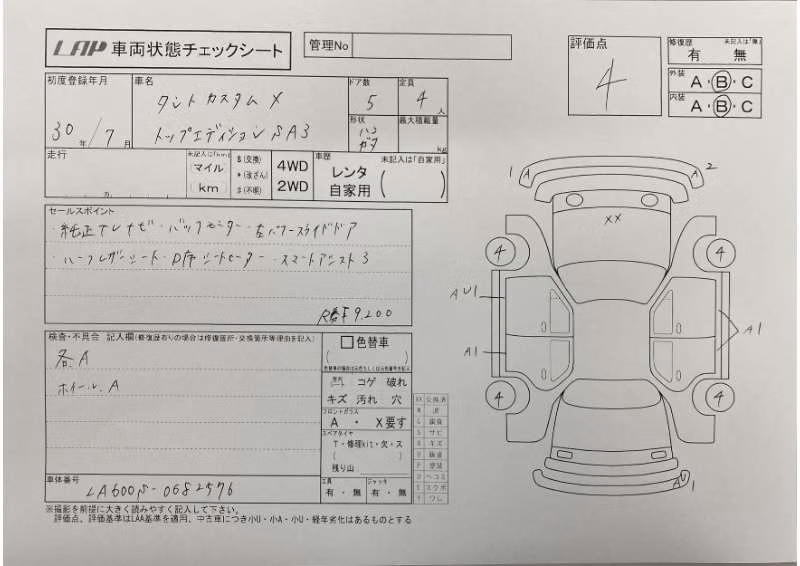 LAP 車両状態チェックシート
管理No
評価点
4
修復歴 未記入は「無」
有 無
外装 A・B・C
内装 A・B・C
初度登録年月
30年/7月
車名
タント カスタム X
トップエディションSA3
ドア数
5
定員
4人
形状
ハコ
ガタ
最大積載量
kg
走行
未記入は(km)
(マイル
km)
$(交換)
*(改ざん)
#(不明)
4WD
2WD
車歴 未記入は「自家用」
レンタ
自家用 ( )
セールスポイント
・純正ナビ・バックモニター・左パワースライドドア
・ハーフレザーシート・D席シートヒーター・スマートアシスト3
R番号 9,200
検査・不具合 記入欄(修復歴有りの場合は修復箇所・交換箇所等理由を記入)
各A
ホイール A
色替車
( )
コゲ 破れ
キズ 汚れ 穴
フロントガラス
A ・ X要す
スペアタイヤ
T・修理kit・欠・ス
( )
残り山
工具
有・無
ジャッキ
有・無
車体番号
LA600S-0682576
※撮影を前提に大きく読みやすく記入して下さい。
評価点、評価基準はLAA基準を適用、中古車につき小U・小A・小U・経年劣化はあるものとする
XX 交換済
1 A
A 2
XX
4
4
AU1
A1
A1
4
4
AU1